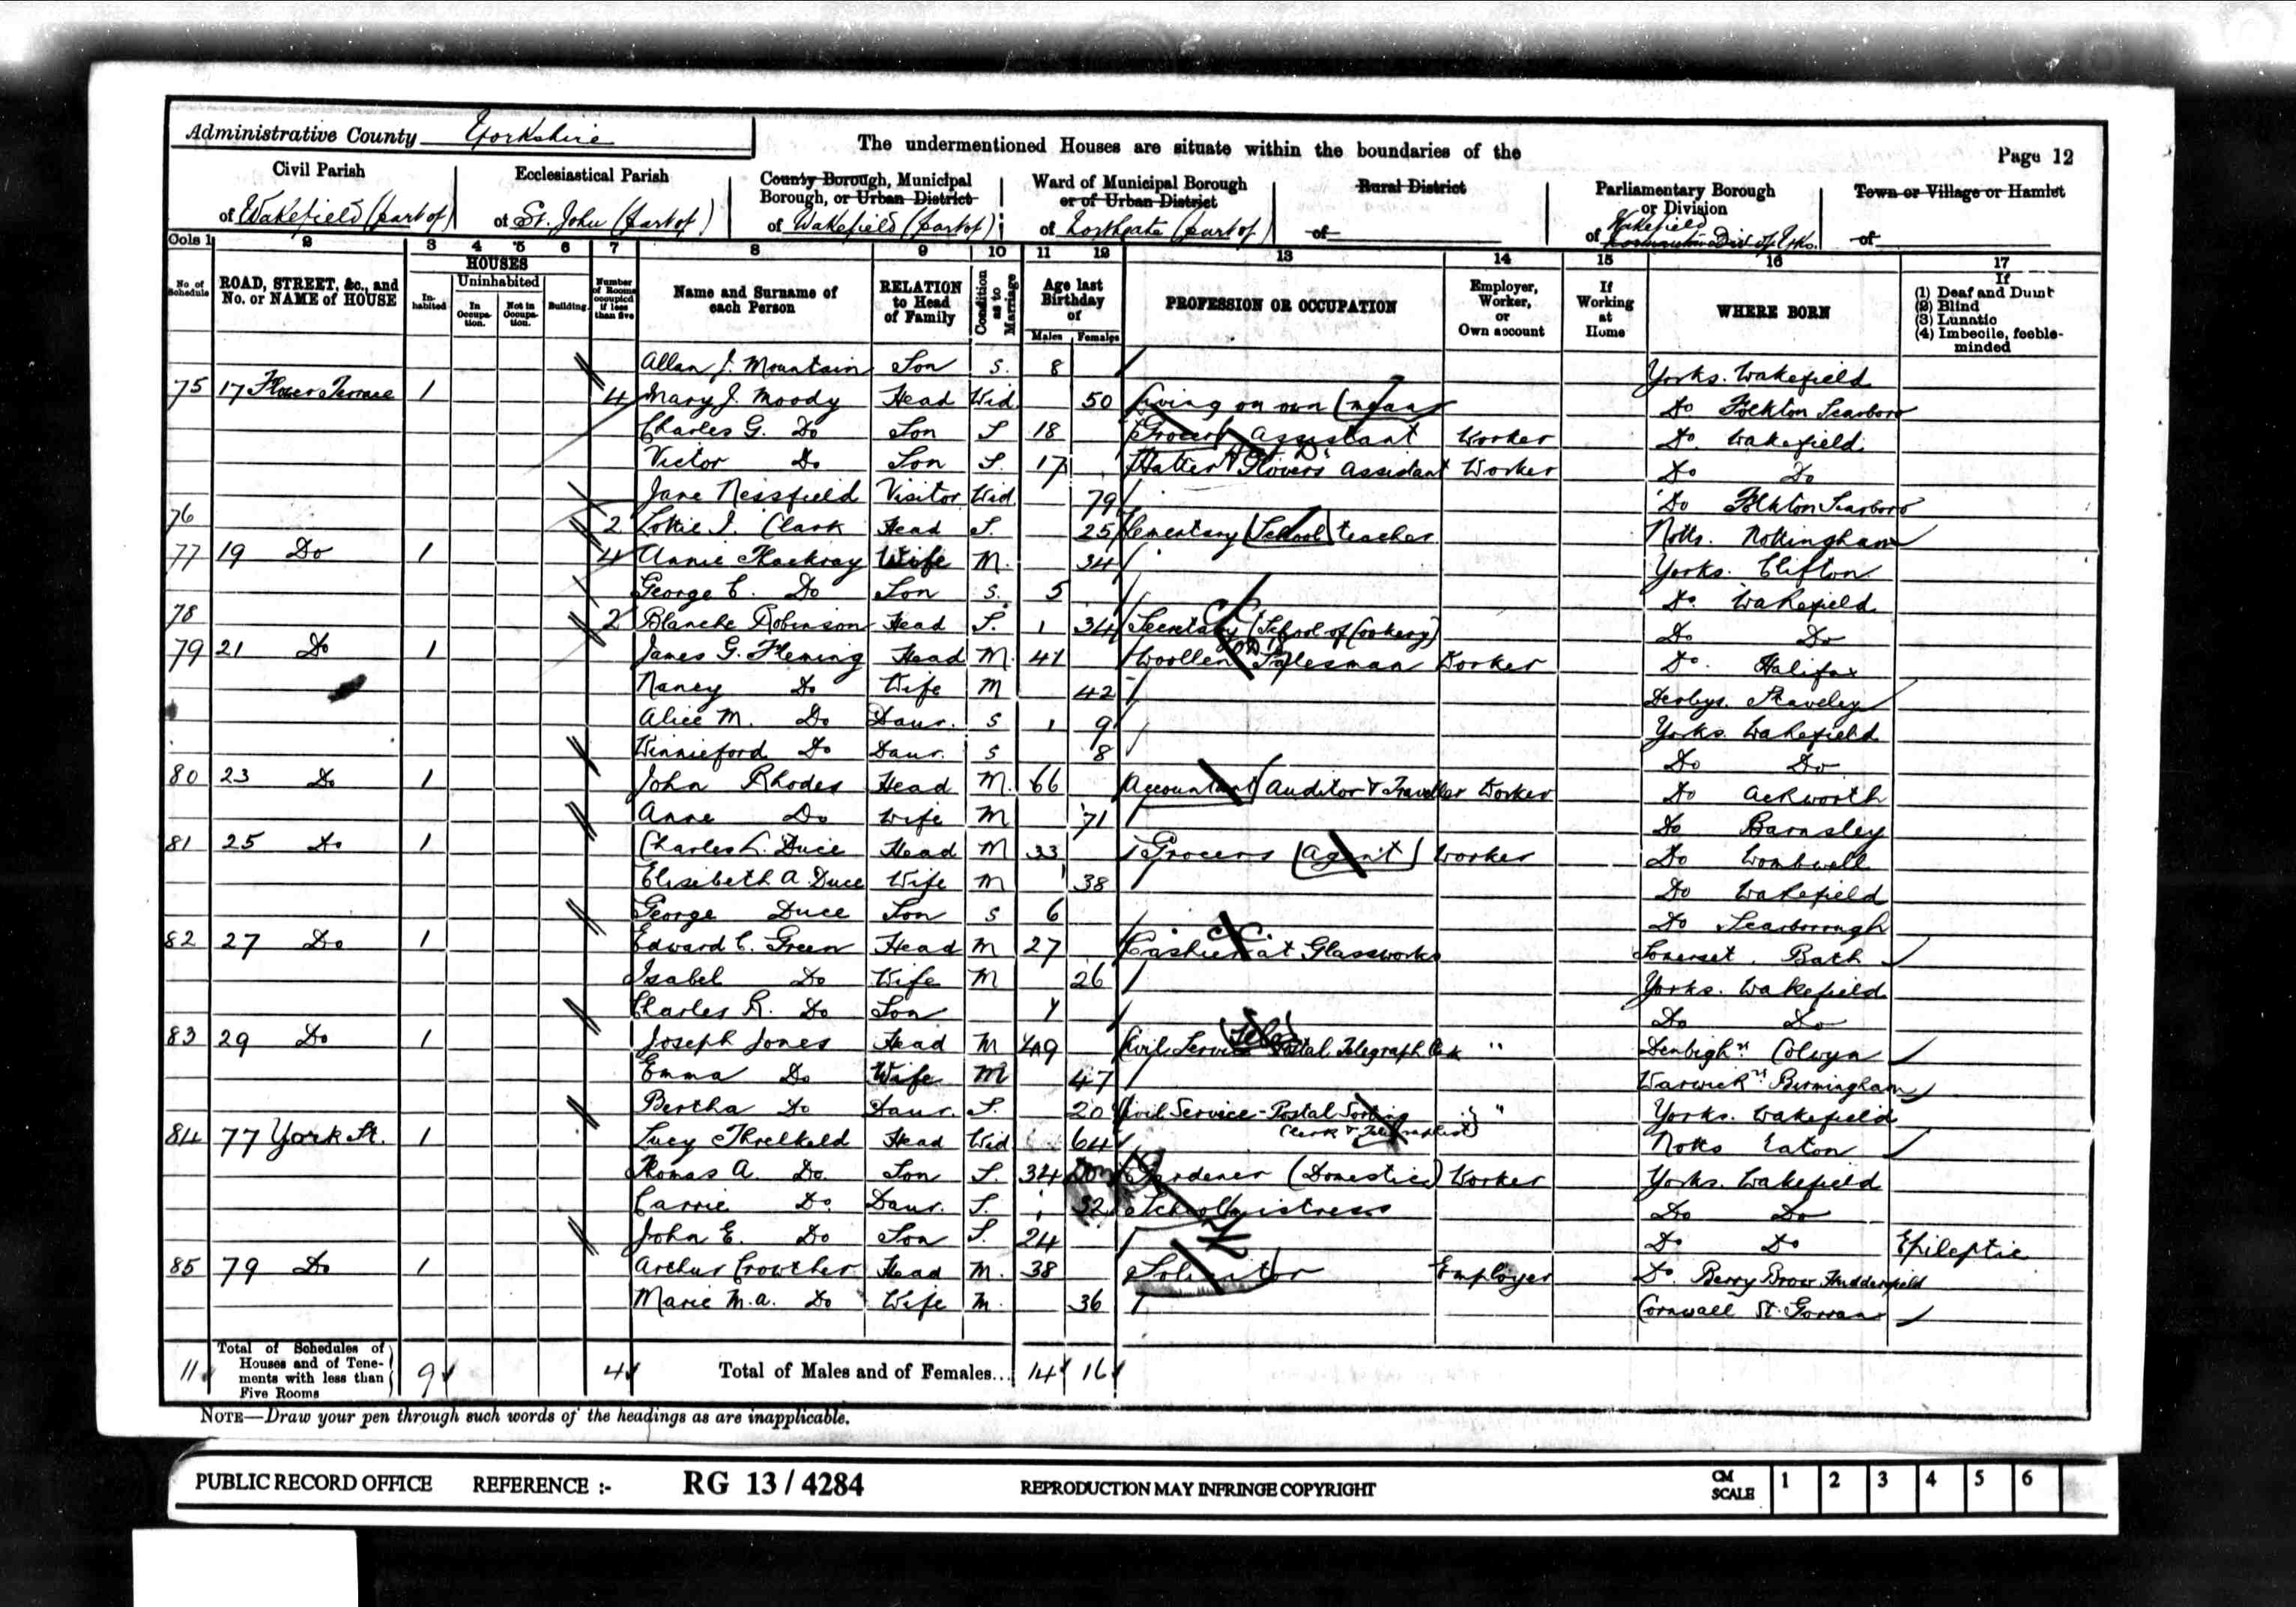 Administrative County Yorkshire
The undermentioned Houses are situate within the boundaries of the
Page 12
Civil Parish
of Wakefield (part of)
Ecclesiastical Parish
of St. John (part of)
County Borough, Municipal
Borough, or Urban District
of Wakefield (part of)
Ward of Municipal Borough
or of Urban District
of Northgate (part of)
Rural District
of
Parliamentary Borough
or Division
of Wakefield
Town or Village or Hamlet
of
Cols 1 2 3 4 5 6 7 8 9 10 11 12 13 14 15 16 17
No of Schedule
ROAD, STREET, &c., and
No. or NAME of HOUSE
HOUSES
In-habited
Uninhabited
In Occupa-tion.
Not in Occupa-tion.
Building.
Number of Rooms occupied if less than five
Name and Surname of
each Person
RELATION
to Head
of Family
Condition as to Marriage
Age last
Birthday
of
Males Females
PROFESSION OR OCCUPATION
Employer,
Worker,
or
Own account
If
Working
at
Home
WHERE BORN
If
(1) Deaf and Dumb
(2) Blind
(3) Lunatic
(4) Imbecile, feeble-
minded
Allan J. Mountain Son S. 8 Yorks. Wakefield
75 17 Flower Terrace 1 4 Mary J. Moody Head Wid 50 Living on own (means Do Folkton Scarboro
Charles G. Do Son S 18 Grocers Assistant Worker Do Wakefield
Victor Do Son S. 17 Hatter & Glovers Assistant Worker Do Do
Jane Nessfield Visitor Wid 79 Do Folkton Scarboro
76 2 Lottie I. Clark Head S. 25 Elementary (School) teacher Notts. Nottingham
77 19 Do 1 4 Annie Thackray Wife M. 34 Yorks. Clifton
George C. Do Son S. 5 Do. Wakefield
78 2 Blanche Robinson Head S. 34 Secretary (School of Cookery) Do Do
79 21 Do 1 James G. Fleming Head M. 41 Woollen Salesman Worker Do. Halifax
Nancy Do Wife M 42 Derbys. Staveley
Alice M. Do Daur. S 9 Yorks. Wakefield
Winnieford Do Daur. S 8 Do Do
80 23 Do 1 John Rhodes Head M. 66 Accountant (Auditor & Traveller Worker Do Ackworth
Anne Do Wife M 71 Do Barnsley
81 25 Do 1 Charles L. Duce Head M 33 Grocers (Agent) Worker Do Wombwell
Elisebeth A. Duce Wife M 38 Do Wakefield
George Duce Son S 6 Do Scarborough
82 27 Do 1 Edward C. Green Head M 27 Cashier at Glassworks Somerset. Bath
Isabel Do Wife M 26 Yorks. Wakefield
Charles R. Do Son 1 Do Do
83 29 Do 1 Joseph Jones Head M 49 Civil Service Postal Telegraph Clerk " Denbigh Colwyn
Emma Do Wife M 47 Warwick Birmingham
Bertha Do Daur. S. 20 Civil Service - Postal Sorting " Yorks. Wakefield
Clerk & Telegraphist)
84 77 York St. 1 Lucy Threlkeld Head Wid 64 Notts Eaton
Thomas A. Do. Son S. 34 Dom Gardener (Domestic) Worker Yorks. Wakefield
Carrie Do Daur. S. 32 Schoolmistress Do Do
John E. Do Son S. 24 Do Do Epileptic
85 79 Do 1 Arthur Crowther Head M. 38 Solicitor Employer Do. Berry Brow Huddersfield
Marie M. A. Do Wife M. 36 Cornwall St. Gorran
11 Total of Schedules of
Houses and of Tene-
ments with less than
Five Rooms
9 4 Total of Males and of Females... 14 16
NOTE—Draw your pen through such words of the headings as are inapplicable.
PUBLIC RECORD OFFICE REFERENCE :- RG 13 / 4284 REPRODUCTION MAY INFRINGE COPYRIGHT CM SCALE 1 2 3 4 5 6